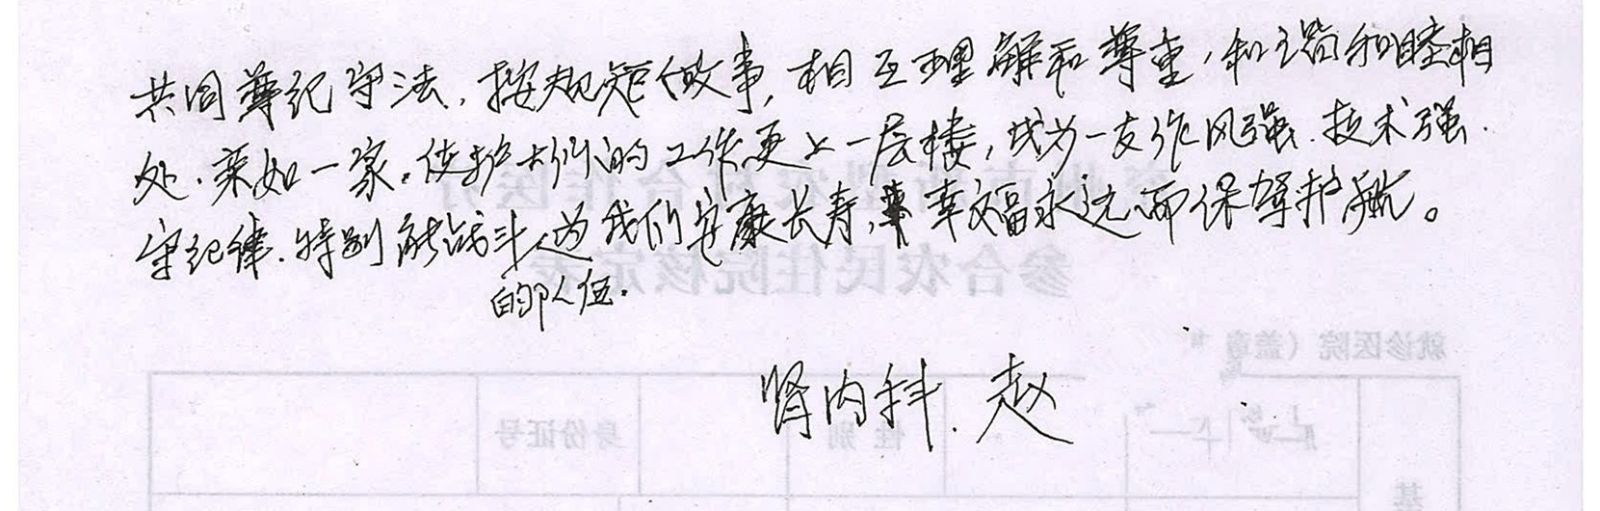 共同尊纪守法，按规矩做事，相互理解和尊重，和谐和睦相
处.亲如一家。使护士们的工作更上一层楼，成为一支作风强.技术强.
守纪律.特别能战斗的队伍.为我们安康长寿，幸福永远而保驾护航。
肾内科.赵
参合农民住院核定表
就诊医院（盖章
性别
身份证号
基